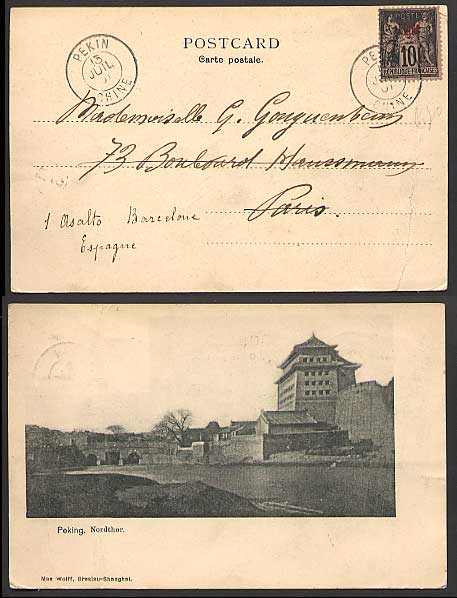 POSTCARD
Carte postale.
PEKIN
15
JUIL
CHINE
POSTE
10
RÉPUBLIQUE FRANÇAISE
CHINE
Mademoiselle G. Gonguenheim
73 Boulevard Haussmann
Paris.
1 Asalto Barcelone
Espagne
Peking, Nordthor.
Max Wolff, Breslau-Shanghai.